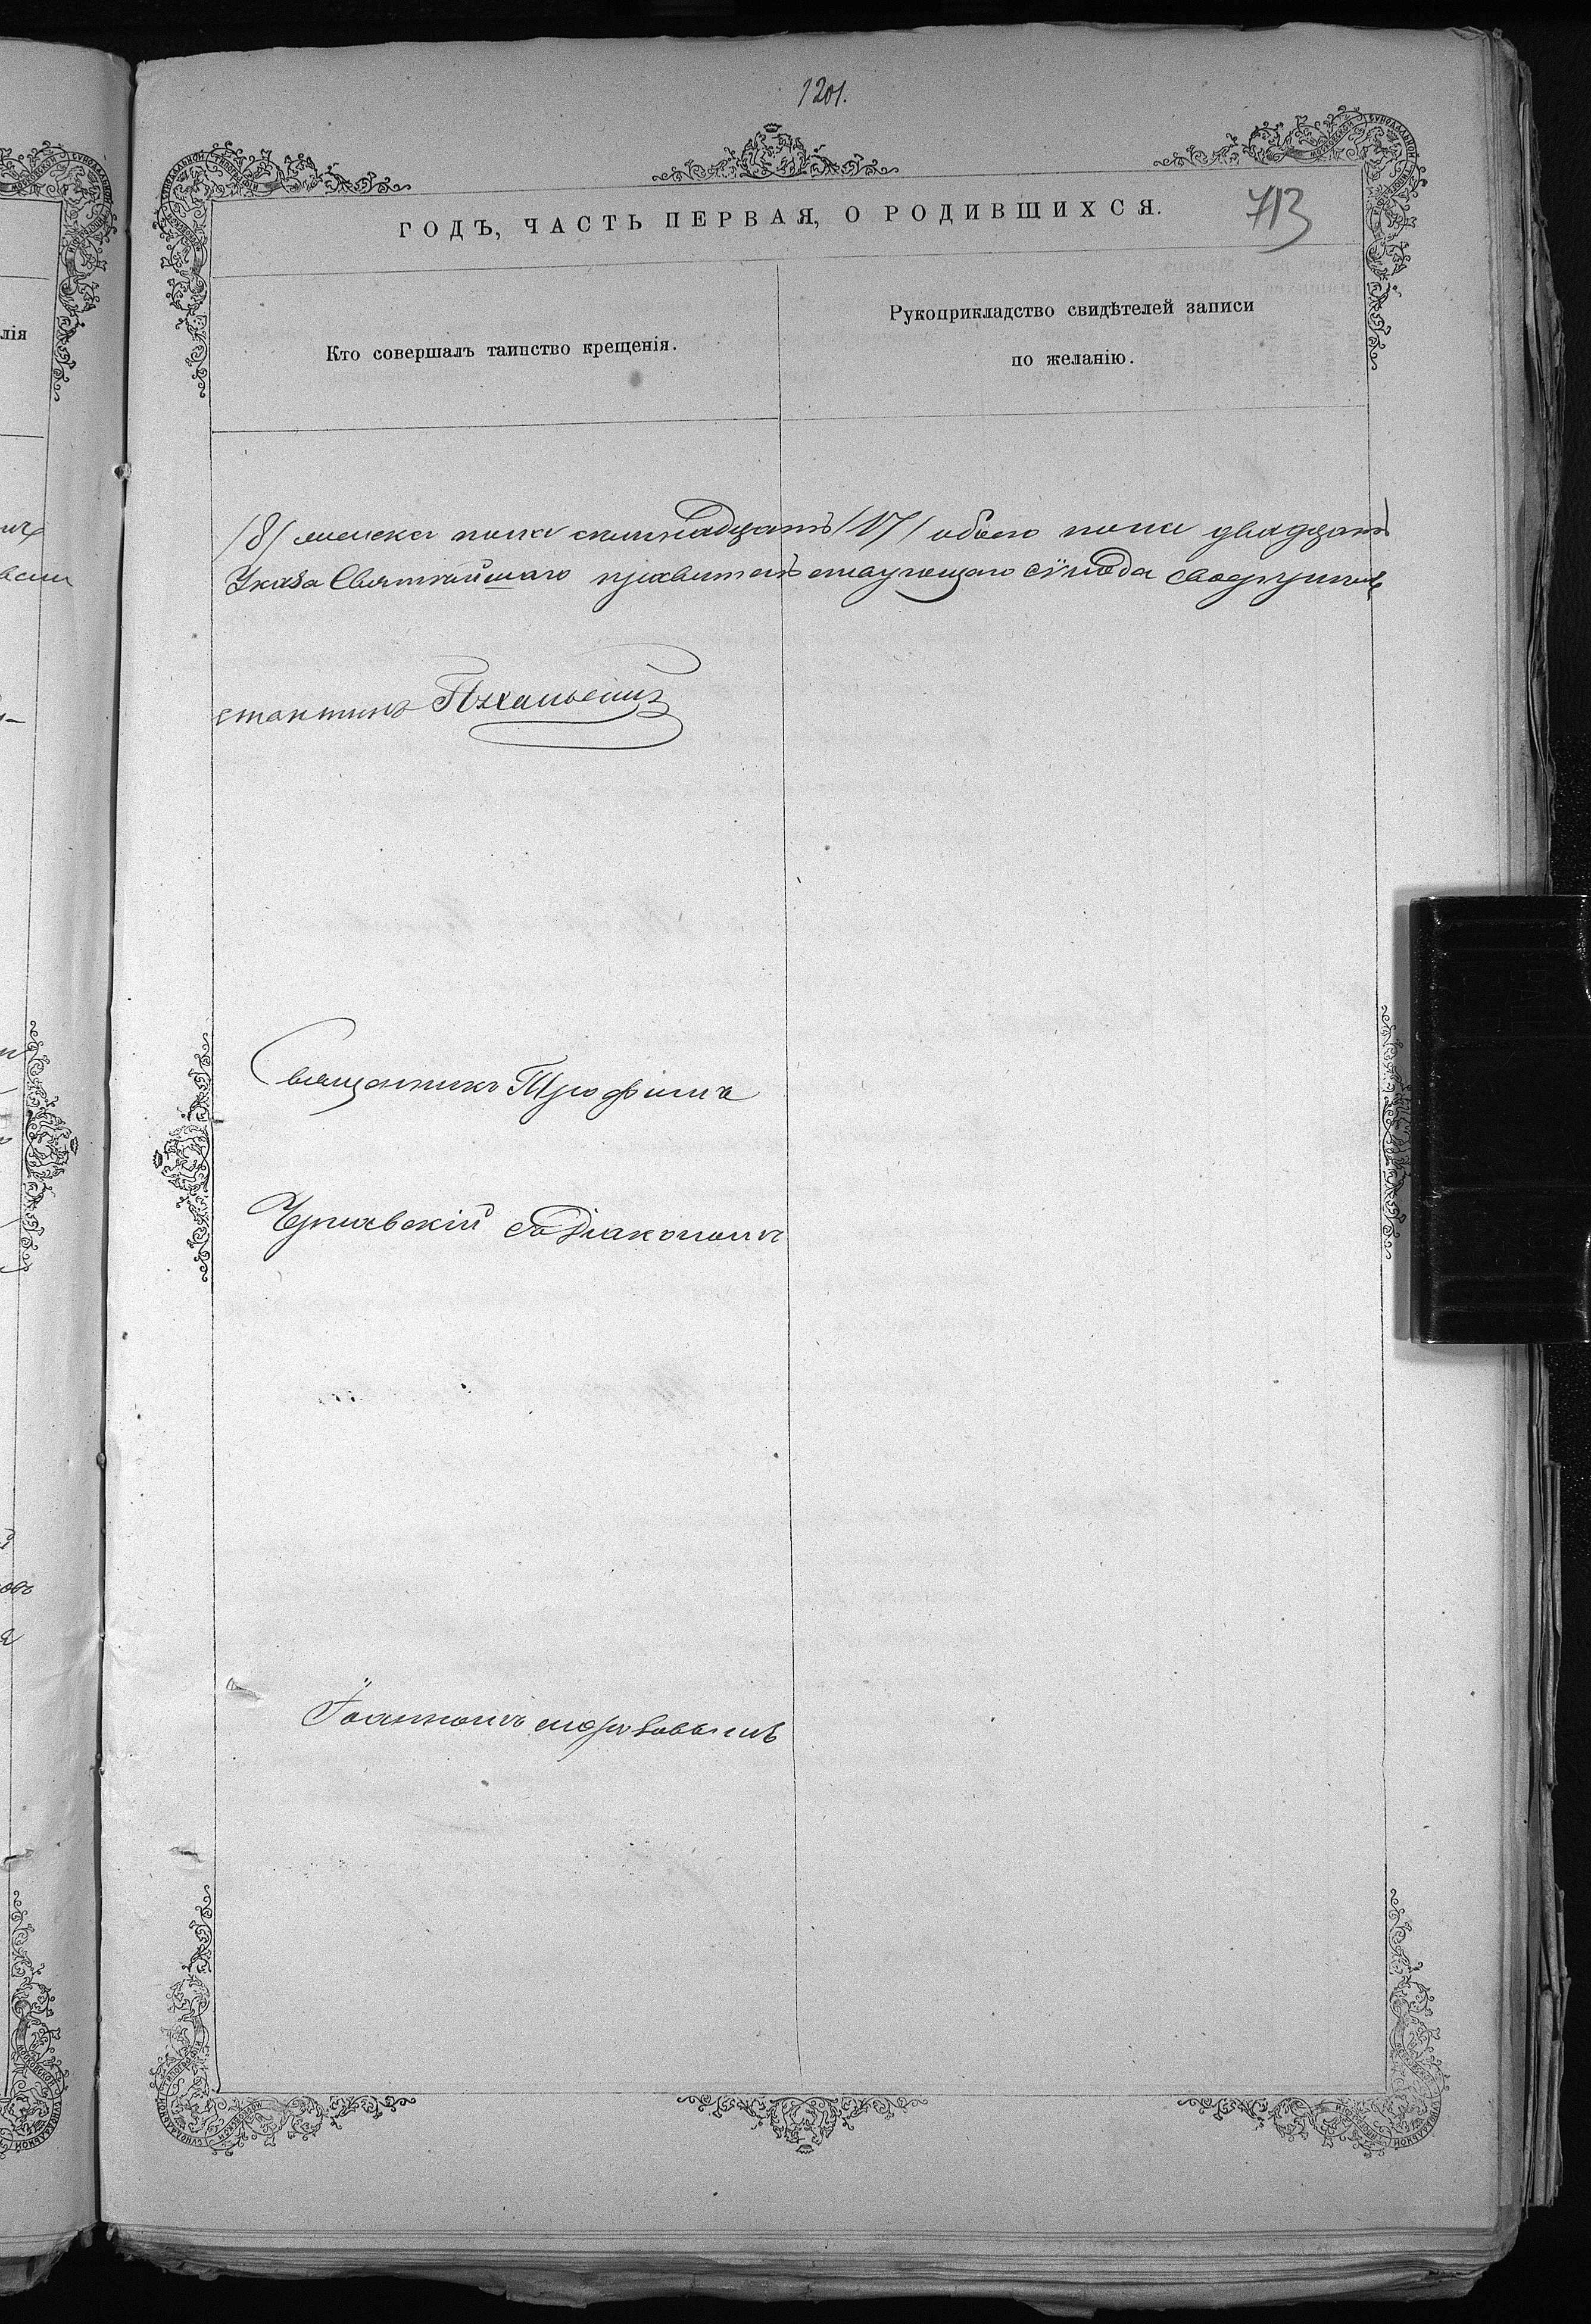 1201.
713
ГОДЪ, ЧАСТЬ ПЕРВАЯ, О РОДИВШИХСЯ.
Кто совершалъ таинство крещенія.
Рукоприкладство свидѣтелей записи
по желанію.
лія
/8/ женска пола семнадцать /17/ обоего пола двадцать
Указа Святейшаго правительствующаго сѵнода
стантинъ
Священникъ Трофимъ
Чернявскій съ Діакономъ
Іоанномъ